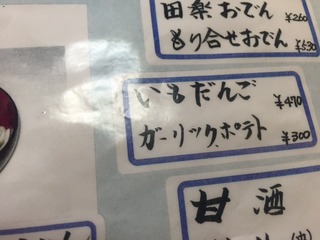 田楽おでん ¥260
もり合せおでん ¥530
いもだんご ¥470
ガーリックポテト ¥300
甘酒